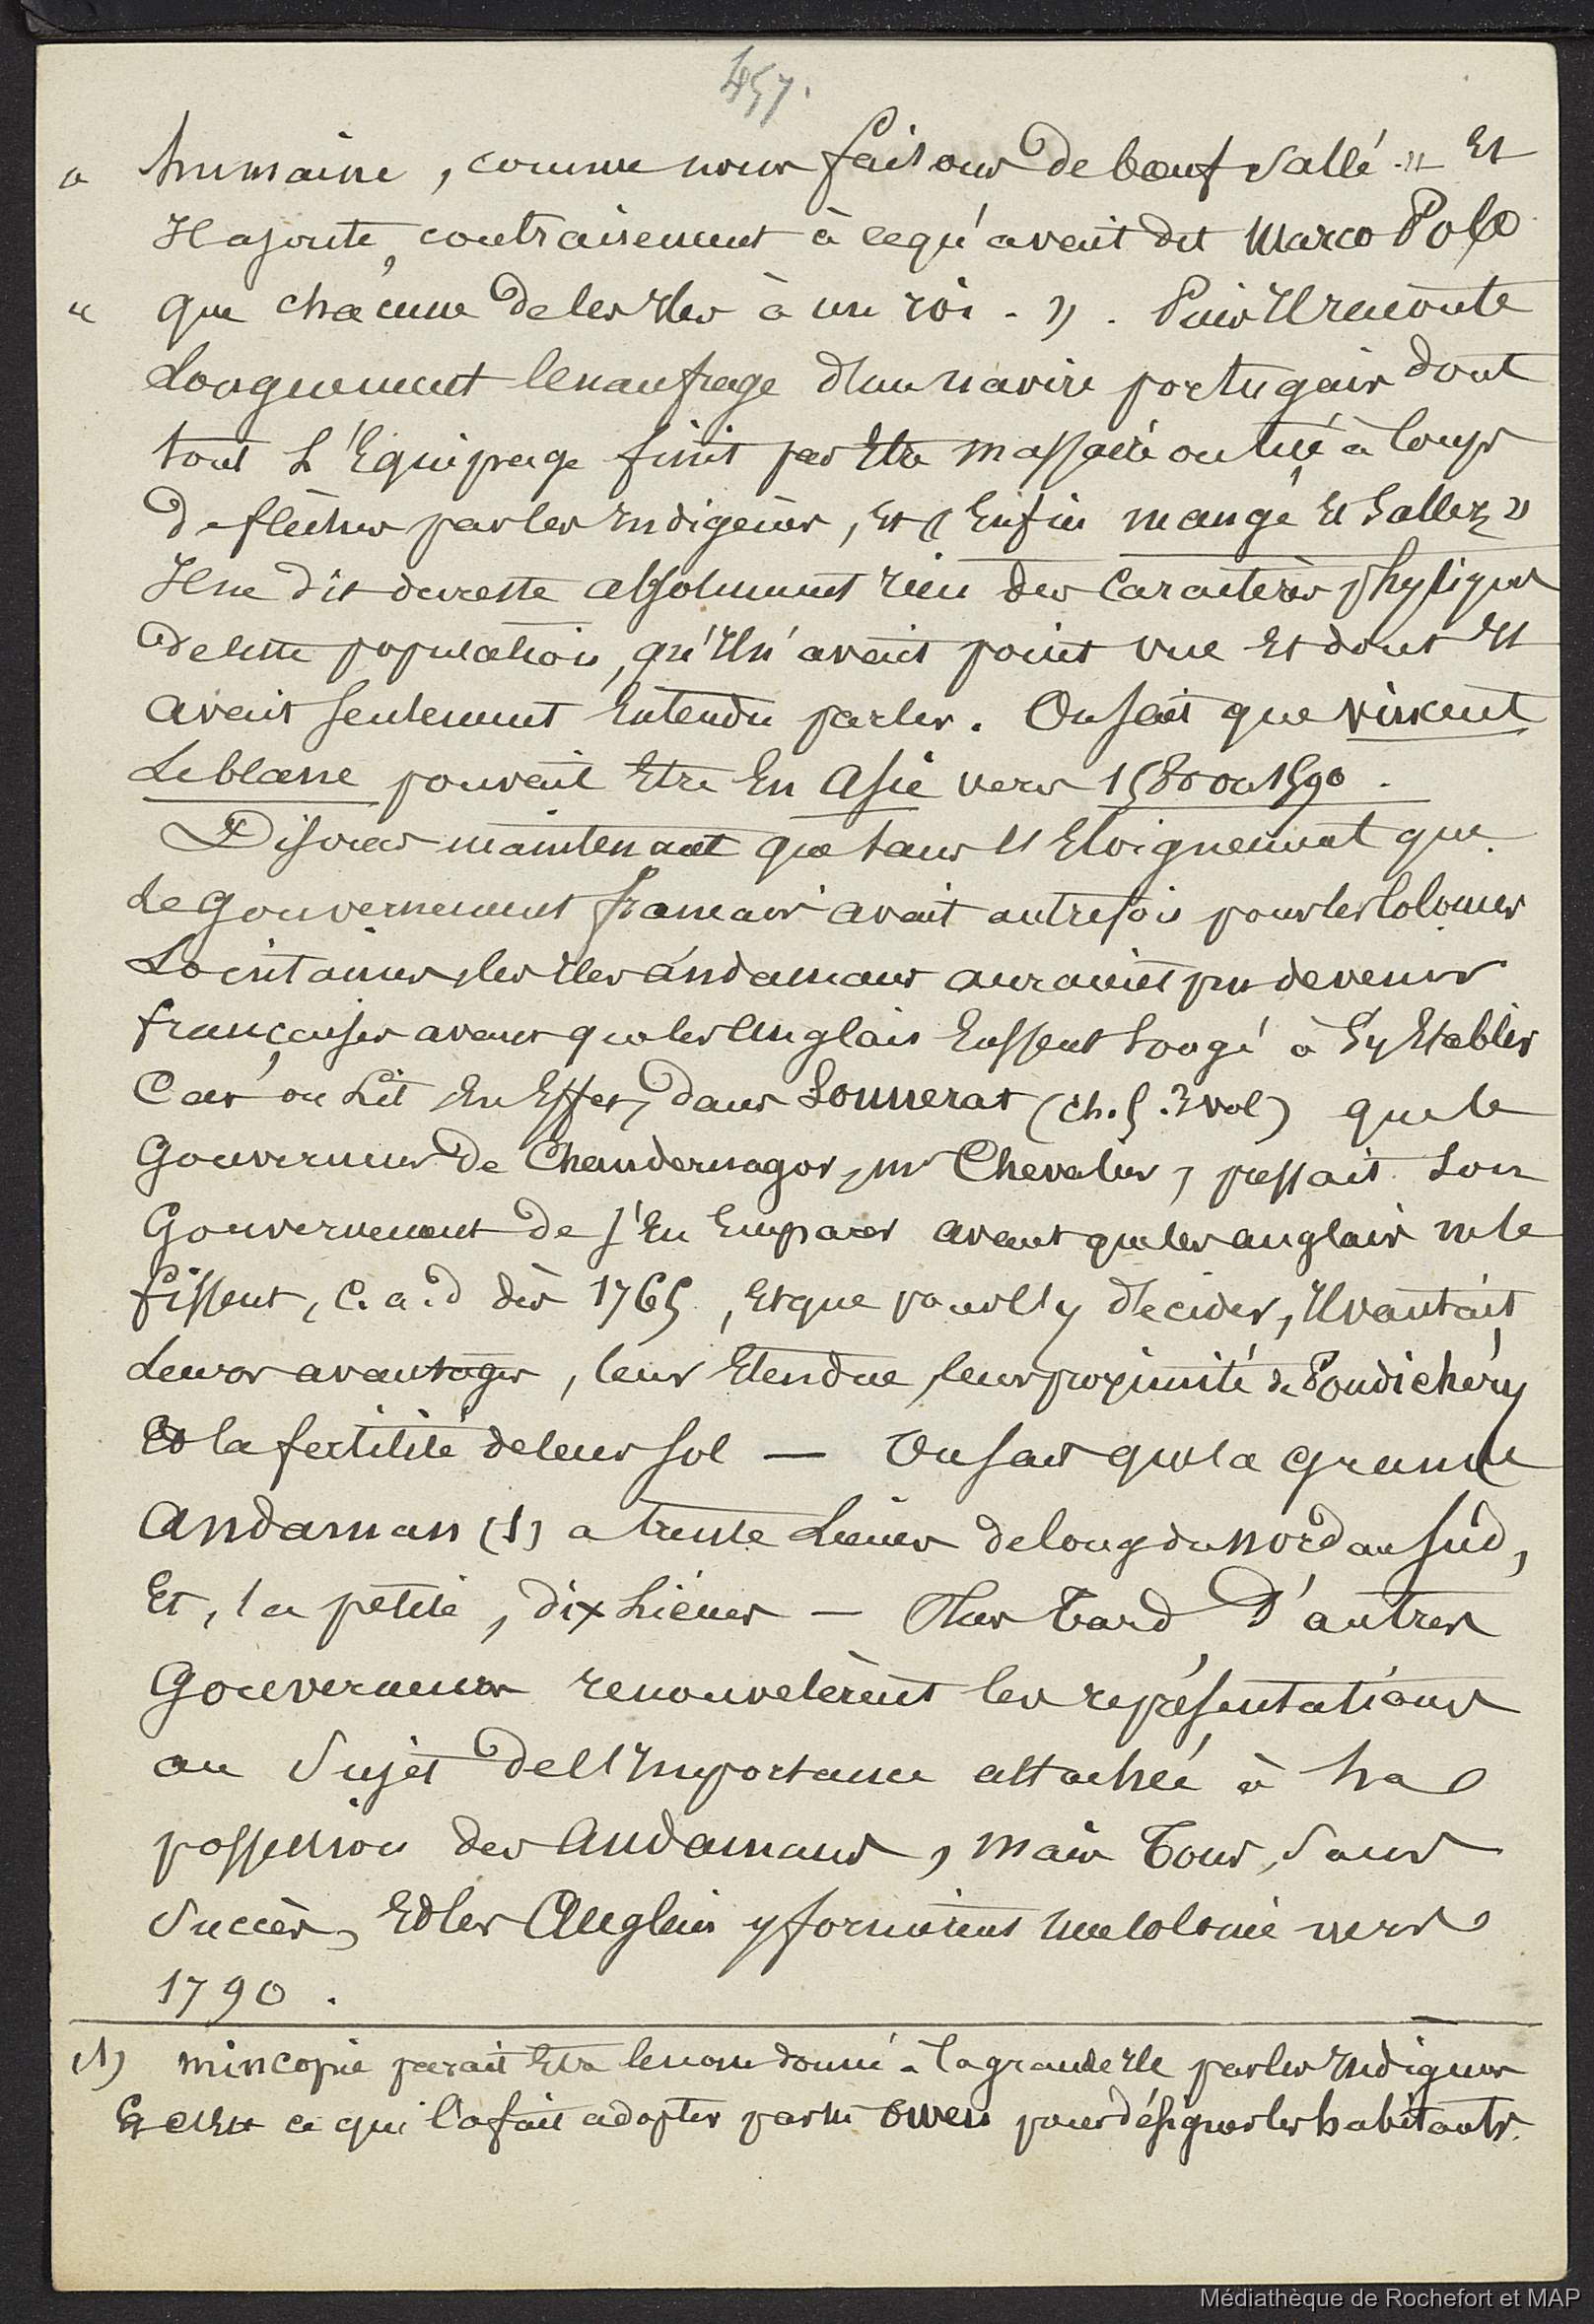 457.
« humaine, comme nous faisons de bœuf Sallé. » Et
Il ajoute, contrairement à ce qu'avait dit Marco Polo
« que chacune de les Iles à un roi. ». Puis Il raconte
Longuement le naufrage d'un navire portugais dont
tout L'Equipage finit par Etre massacré ou tué à Coups
de flèches par les Indigènes, Et « Enfin mangé Et Sallez »
Il ne dit du reste absolument rien des Caractères physiques
de cette population, qu'Il n'avait point vue Et dont Il
avait seulement Entendu parler. On sait que Vincent
Leblanc pouvait Etre En Asie vers 1580 ou 1590.
Disons maintenant que sans l'Eloignement que
Le Gouvernement français avait autrefois pour les Colonies
Lointaines, les Iles andamans auraient pu devenir
françaises avant que les Anglais Eussent Songé à s'y Etablir
Car on Lit En Effet, dans Sonnerat (ch. 5. 3 vol) que le
Gouverneur de Chandernagor, mr Chevalier, pressait Son
Gouvernement de s'En Emparer avant que les anglais ne le
fissent, C.a.d dès 1765, Et que pour l'y décider, Il vantait
Leurs avantages, leur Etendue, leur proximité de Pondichéry
Et la fertilité de leur sol — On sait que la grande
Andaman (1) a trente Lieues de long du nord au sud,
Et, la petite, dix Lieues — Plus Tard D'autres
Gouverneurs renouvelèrent les représentations
au Sujet de l'Importance attachée à La
possession des Andamans, mais Tous, Sans
Succès, Et les Anglais y formèrent une Colonie vers
1790.
(1) mincopie parait Etre le nom donné à la grande Ile par les Indigènes
Et c'Est ce qui l'a fait adopter par Mr Owen pour désigner les habitants.
Médiathèque de Rochefort et MAP